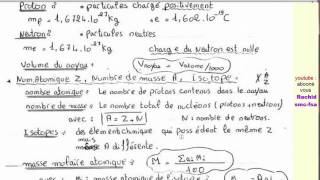 Proton : • particules chargé positivement
mp = 1,6724.10⁻²⁷ Kg e = 1,602.10⁻¹⁹ C
Neutron : • particules neutres
me = 1,674.10⁻²⁷ Kg charge du Neutron est nulle
Volume du noyau = Vnoyau = Volume/1000
Num.Atomique Z, Nombre de masse A, isotope :
nombre atomique : Le nombre de protons contenus dans le noyau
nombre de masse : Le nombre total du nucléons (protons + neutrons)
avec : A = Z + N N : nombre de neutrons.
Isotopes = des élément chimique qui possèdent le même Z
mais
A différente.
masse molaire atomique : M = Σ ai Mi / 100
M = masse atomique de l'isotope
youtube
abonne
vous
Rachid
smc-fsa